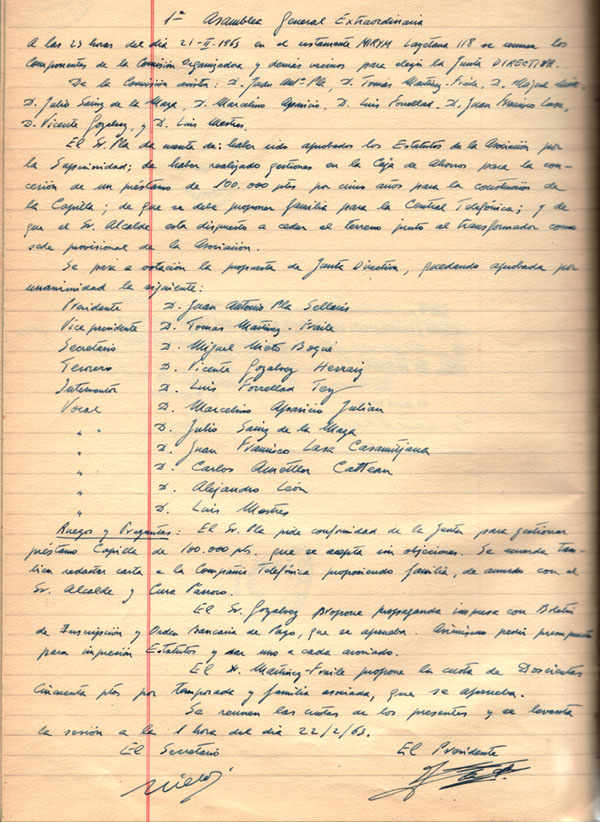 1ª Asamblea General Extraordinaria
A las 23 horas del dia 21-II-1963 en el restaurante MIRYM Layetana 118 se reunen los
componentes de la Comisión Organizadora y demás vecinos para elegir la Junta DIRECTIVA.
De la Comisión asisten: D. Juan Antº Pla, D. Tomás Martinez-Fraile, D. Miguel Nieto,
D. Julio Sainz de la Maza, D. Marcelino Aparicio, D. Luis Forrellad, D. Juan Francisco Lasa,
D. Vicente Gozalvez, y D. Luis Mestres.
El Sr. Pla da cuenta de: haber sido aprobados los Estatutos de la Asociación por
la Superioridad; de haber realizado gestiones en la Caja de Ahorros para la con-
cesión de un préstamo de 100.000 ptas por cinco años para la construcción de
la Capilla; de que se debe proponer familia para la Central Telefónica; y de
que el Sr. Alcalde esta dispuesto a ceder el terreno junto al transformador como
sede provisional de la Asociación.
Se pasa a votación la propuesta de Junta Directiva, quedando aprobada por
unanimidad la siguiente:
Presidente D. Juan Antonio Pla Sellarés
Vicepresidente D. Tomas Martinez-Fraile
Secretario D. Miguel Nieto Boqué
Tesorero D. Vicente Gozalvez Herraiz
Interventor D. Luis Forrellad Tey
Vocal D. Marcelino Aparicio Julian
" " D. Julio Sainz de la Maza
" D. Juan Francisco Lasa Casamitjana
" D. Carlos Ametller Cattean
" D. Alejandro León
" D. Luis Mestres
Ruegos y Preguntas: El Sr. Pla pide conformidad de la Junta para gestionar
préstamo Capilla de 100.000 pts. que se acepta sin objeciones. Se acuerda tam-
bien redactar carta a la Compañia Telefónica proponiendo familia, de acuerdo con el
Sr. Alcalde y Cura Parroco.
El Sr. Gozalvez propone propaganda impresa con Boletin
de Inscripción y Orden Bancaria de Pago, que se aprueba. Asimismo pedir presupuesto
para impresión Estatutos y dar uno a cada asociado.
El Sr. Martinez-Fraile propone la cuota de Doscientas
cincuenta ptas por temporada y familia asociada, que se aprueba.
Se reunen las cuotas de los presentes y se levanta
la sesión a la 1 hora del dia 22/2/63.
El Secretario El Presidente